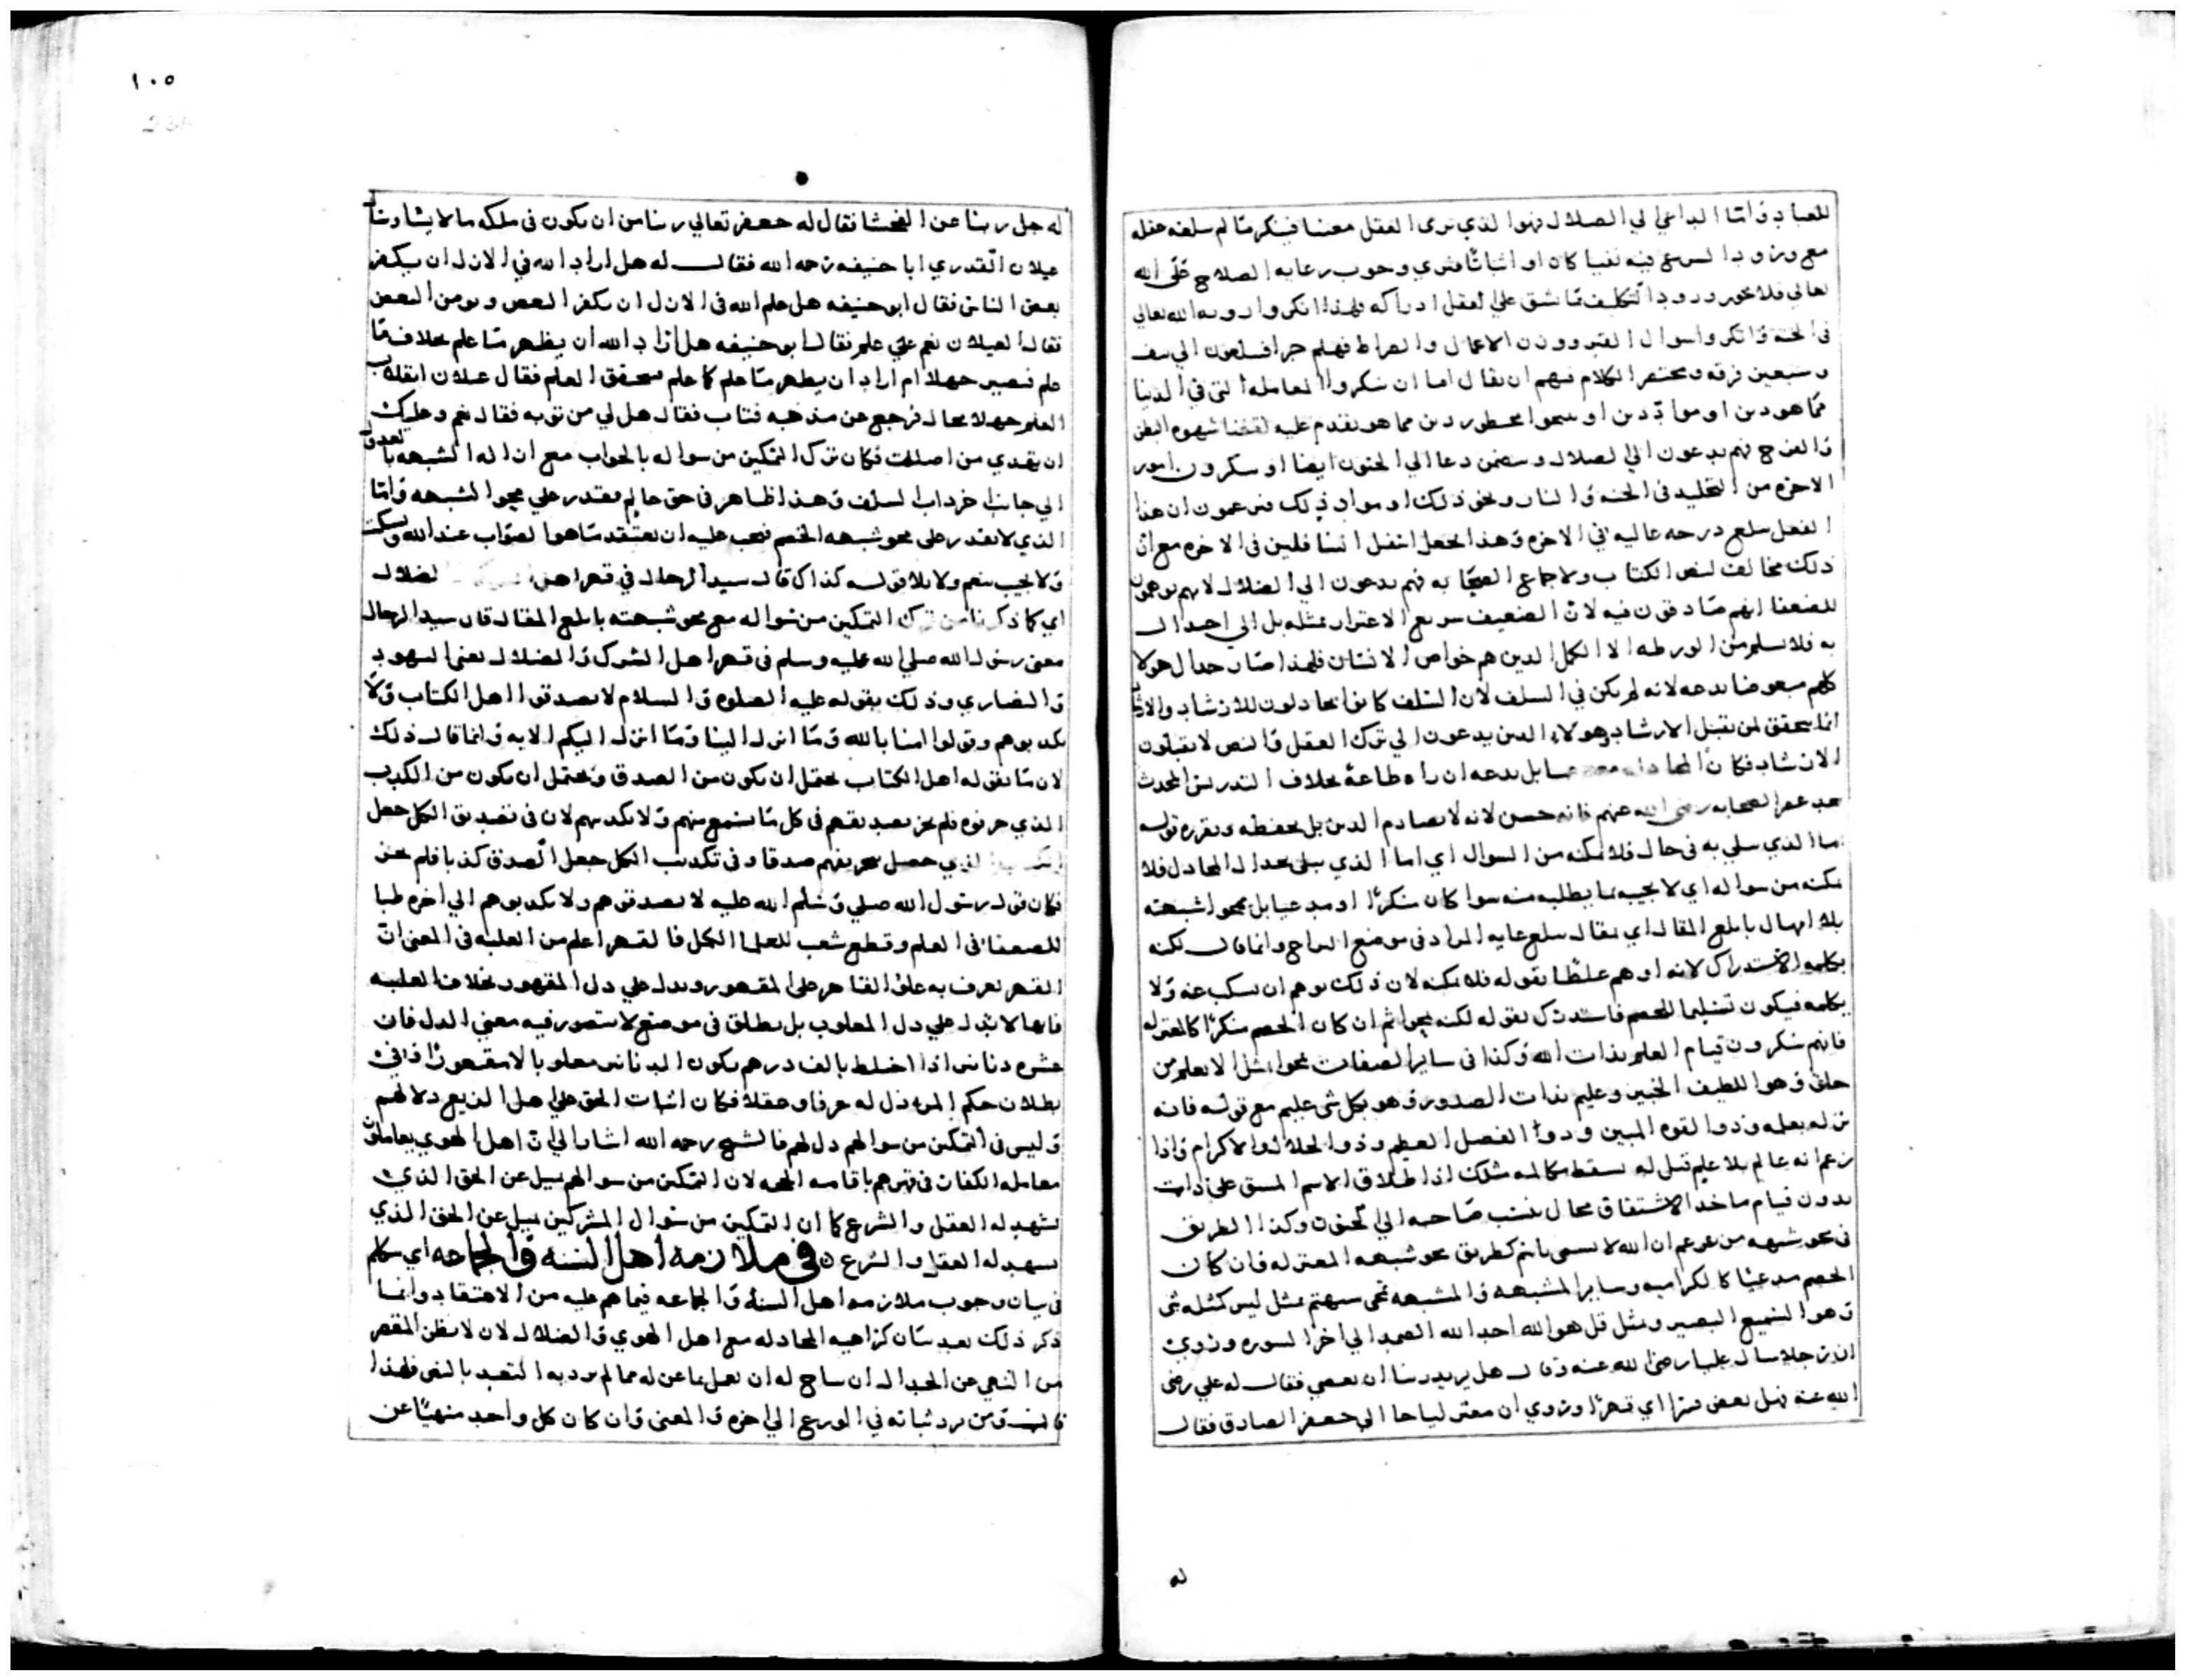 للعباد واما الداعي الي الضلال فهو الذي يري العقل معينا فينكر ما لم يبلغه عقله
مع ورود الشرع فيه نفيا كان او اثباتا فيري وجوب رعايه الصلاح علي الله
تعالي فلا يجوز ورود التكليف بما يشق علي العقل ادراكه فلهذا انكروا رويه الله تعالي
في الجنه وانكروا سوال القبر ووزن الاعمال والصراط فهلم جرا فيبلغون الي نيف
وسبعين فرقه ومختصر الكلام فيهم ان يقال اما ان ينكروا المعامله التي في الدنيا
مما هو دين او مواد دين او يبيحوا محظور دين مما هو يقدم عليه لقضا شهوه البطن
والفرج فهم يدعون الي الضلال ويتضمن دعا الي الجنون ايضا او ينكرون امور
الاخره من التخليد في الجنه والنار ونحو ذلك او مواد ذلك فيزعمون ان هذا
الفعل يبلغ درجه عاليه في الاخره وهذا يجعل اسفل السافلين في الاخره مع ان
ذلك مخالف لنص الكتاب ولاجماع الصحابه فهم يدعون الي الضلال لانهم يوهمون
للضعفا انهم صادقون فيه لان الضعيف سريع الاغترار بمثله بل الي احدال
به فلا يسلم من الورطه الا الكمل الذين هم خواص الانسان فلهذا صار جدال هولا
كلهم مبغوضا بدعه لانه لم يكن في السلف لان السلف كانوا يجادلون للارشاد والارشاد
انما يتحقق لمن يقبل الارشاد وهولاء الذين يدعون الي ترك العقل والنص لا يقبلون
الارشاد فكان المجادله معصيه بل بدعه ان راه طاعة بخلاف التدريس المحدث
بعد عصر الصحابه رضي الله عنهم فانه حسن لانه لا يصادم الدين بل يحفظه ويقرره قوله
اما الذي يبلي به في حال فلا يمكنه من السوال اي اما الذي يبلي بجدال المجادل فلا
يمكنه من سواله اي لا يجيبه بما يطلبه منه سوا كان منكرا او مدعيا بل يمحوا شبهته
بلا امهال بابلغ المقال اي بمقال يبلغ غايه المراد في موضع المراح وانما قال لكنه
بكلمه الاستدراك لانه اوهم غلطا بقوله فلا يمكنه لان ذلك يوهم ان يسكت عنه ولا
يكلمه فيكون تسليما للخصم فاستدرك بقوله لكنه يمحوا ثم ان كان الخصم منكرا كالمعتزله
فانهم ينكرون قيام العلم بذات الله وكذا في ساير الصفات يمحوا بمثل الا يعلم من
خلق وهو اللطيف الخبير وعليم بذات الصدور وهو بكل شي عليم مع قوله فانه
نزله بعلمه وذو القوه المتين وذوا الفضل العظيم وذو الجلال والاكرام واذا
زعم انه عالم بلا علم قيل له يسقط مكالمه مثلك اذ اطلاق الاسم المشتق علي ذات
بدون قيام ماخذ الاشتقاق محال ينسب صاحبه الي الجنون وكذا الطريق
في محو شبهه من يزعم ان الله لا يسمي باسم كطريق محو شبهه المعتزله فان كان
الخصم مدعيا كالكراميه وساير المشبهه والمشبهه تمحي شبهتهم بمثل ليس كمثله شي
وهو السميع البصير ومثل قل هو الله احد الله الصمد الي اخر السوره وروي
ان رجلا سال عليا رضي الله عنه وقال هل يريد ربنا ان يعصي فقال له علي رضي
الله عنه فهل يعصي قسرا اي قهرا وروي ان معتزليا جا الي جعفر الصادق فقال
له
١٠٥
له جل ربنا عن الفحشا فقال له جعفر تعالي ربنا من ان يكون في ملكه ما لا يشا وسال
غيلان القدري ابا حنيفه رحمه الله فقال له هل اراد الله في الازل ان يكفر
بعض الناس فقال ابو حنيفه هل علم الله في الازل ان يكفر البعض ويومن البعض
فقال الغيلان نعم علي علم فقال ابو حنيفه هل اراد الله ان يظهر ما علم بخلاف ما
علم فيصير جهلا ام اراد ان يظهر ما علم كما علم فيتحقق العلم فقال غيلان انقلاب
العلم جهلا محال فرجع عن مذهبه فتاب فقال هل لي من توبه فقال نعم وعليك
ان تفدي من اضللت فكان ترك التمكين من سواله بالجواب مع ازاله الشبهه بالعدول
الي جانب اخر داب السلف وهذا ظاهر في حق عالم يقدر علي محو الشبهه واما
الذي لا يقدر علي محو شبهه الخصم فيجب عليه ان يعتقد ما هو الصواب عند الله ويسكت
ولا يجيب بنعم ولا بلا قوله كذاك قال سيد الرجال في قهر اهل الشرك والضلال
اي كما ذكرنا من ترك التمكين من سواله مع محو شبهته بابلغ المقال قال سيد الرجال
يعني رسول الله صلي الله عليه وسلم في قهر اهل الشرك والضلال يعني اليهود
والنصاري وذلك بقوله عليه الصلوه والسلام لا تصدقوا اهل الكتاب ولا
تكذبوهم وقولوا امنا بالله وما انزل الينا وما انزل اليكم الايه وانما قال ذلك
لان ما يقوله اهل الكتاب يحتمل ان يكون من الصدق ويحتمل ان يكون من الكذب
الذي حرفوه فلم يجز تصديقهم في كل ما يسمع منهم ولا تكذيبهم لان في تصديق الكل جعل
الكذب الذي حصل بتحريفهم صدقا وفي تكذيب الكل جعل الصدق كذبا فلم يجز
فكان قول رسول الله صلي وسلم الله عليه لا تصدقوهم ولا تكذبوهم الي اخره طبا
للضعفا في العلم وقطع شغب للعلما الكمل فالقهر اعلم من الغلبه في المعني لان
القهر يعرف به علو القاهر علي المقهور ويدل علي ذل المقهور بخلاف الغلبه
فانها لا تدل علي ذل المغلوب بل يطلق في موضع لا يتصور فيه معني الذل فان
عشره دنانير اذا اختلط بالف درهم يكون الدنانير مغلوبا لا مقهورا ففي
بطلان حكم المرء ذل له عرفا وعقلا فكان اثبات الحق علي اهل البدع دلا لهم
وليس في التمكين من سوالهم ذل لهم فالشيخ رحمه الله اشار الي ان اهل الهوي يعاملون
معامله الكفار في قهرهم باقامه الحجه لان التمكين من سوالهم ميل عن الحق الذي
يشهد له العقل والشرع كما ان التمكين من سوال المشركين ميل عن الحق الذي
يشهد له العقل والشرع ن في ملازمه اهل السنه والجماعه اي تكلم
في بيان وجوب ملازمه اهل السنه والجماعه فيما هم عليه من الاعتقاد وانما
ذكر ذلك بعد بيان كراهيه المجادله مع اهل الهوي والضلال لان لا يظن المقصر
من النهي عن الجدال ان يباح له ان يعمل بما عن له مما لم يرد به التعبد بالنص فلهذا
قال ومن يرد ثباته في الورع الي اخره والمعني وان كان كل واحد منهيا عن